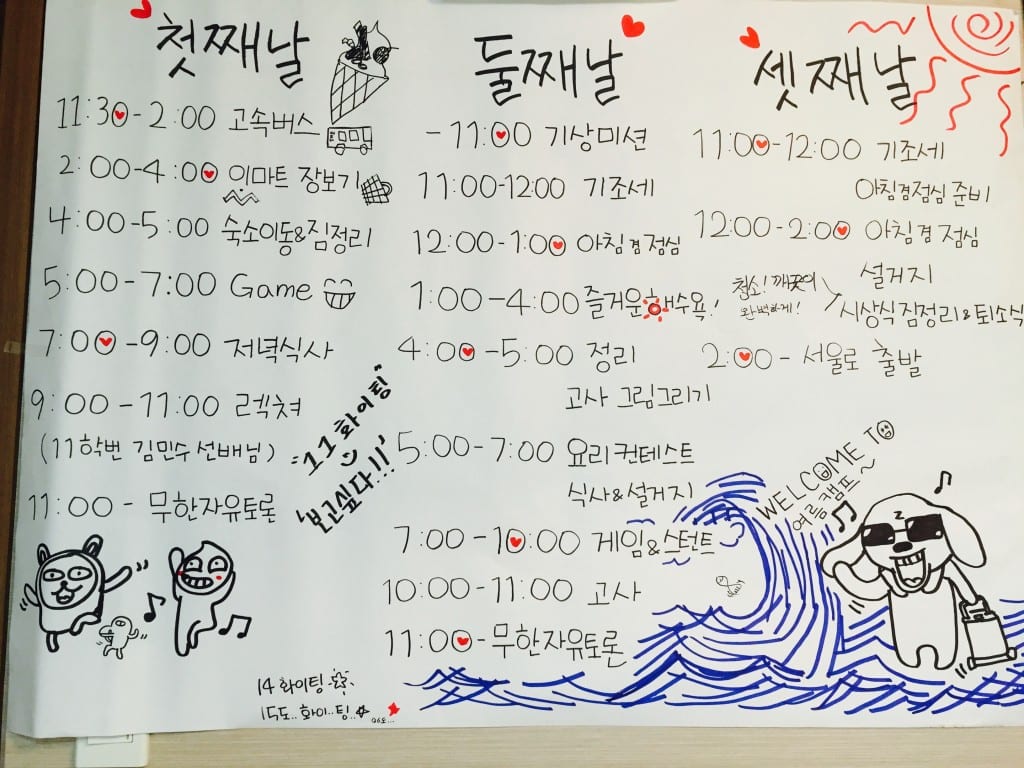 첫째날
11:30-2:00 고속버스
2:00-4:00 이마트 장보기
4:00-5:00 숙소이동&짐정리
5:00-7:00 Game
7:00-9:00 저녁식사
9:00-11:00 렉쳐
(11학번 김민수 선배님)
11:00- 무한자유토론
"11 화이팅"
보고싶다!!!
14 화이팅
15도.. 화이..팅..
둘째날
-11:00 기상미션
11:00-12:00 기조세
12:00-1:00 아침겸점심
1:00-4:00 즐거운해수욕!
4:00-5:00 정리
고사 그림그리기
5:00-7:00 요리컨테스트
식사&설거지
7:00-10:00 게임&스턴트
10:00-11:00 고사
11:00- 무한자유토론
셋째날
11:00-12:00 기조세
아침겸점심 준비
12:00-2:00 아침겸 점심
설거지
청소! 깨끗이
완벽하게!
시상식짐정리&퇴소식
2:00- 서울로 출발
WELCOME TO
여름캠프~